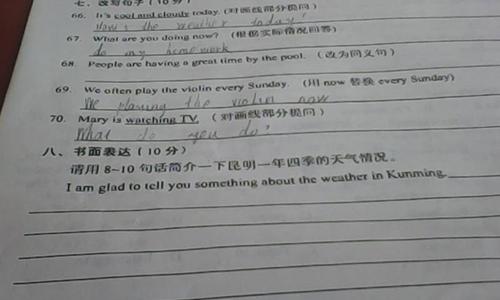 七、改写句子 (10分)
66. It's cool and cloudy today. (对画线部分提问)
How's the weather today?
67. What are you doing now? (根据实际情况回答)
do my homework
68. People are having a great time by the pool. (改为同义句)
69. We often play the violin every Sunday. (用 now 替换 every Sunday)
We playing the violin now
70. Mary is watching TV. (对画线部分提问)
What do you do?
八、书面表达 (10分)
请用 8~10 句话简介一下昆明一年四季的天气情况。
I am glad to tell you something about the weather in Kunming.